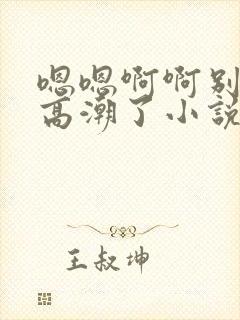 嗯嗯啊啊别
高潮了小说
王叔坤